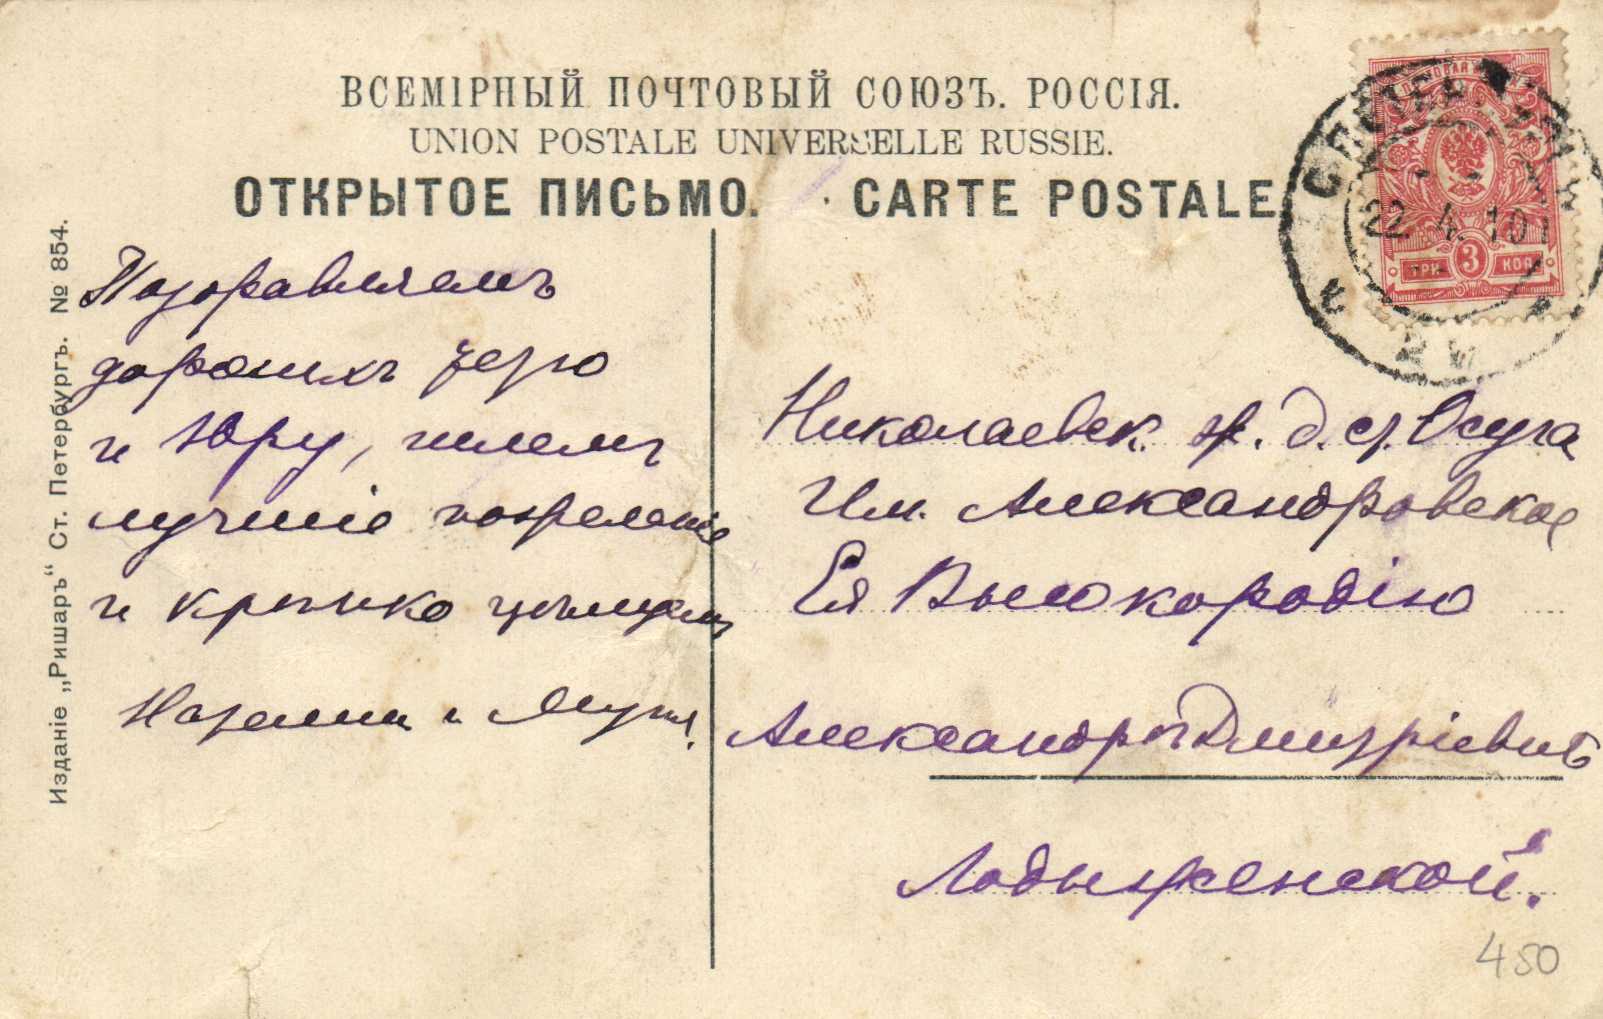 ВСЕМІРНЫЙ ПОЧТОВЫЙ СОЮЗЪ. РОССІЯ.
UNION POSTALE UNIVERSELLE RUSSIE.
ОТКРЫТОЕ ПИСЬМО. CARTE POSTALE
Изданіе „Ришаръ“ Ст. Петербургъ. № 854.
Поздравляемъ
дорогихъ
и Юру, шлемъ
лучшіе
и крѣпко цѣлуемъ
и
22.4.10
ТРИ 3 КОП
Николаевск. ж. д. ст. Осуга
Им. Александровское
Ея Высокородію
Александрѣ Дмитріевнѣ
Лодыженской.
450